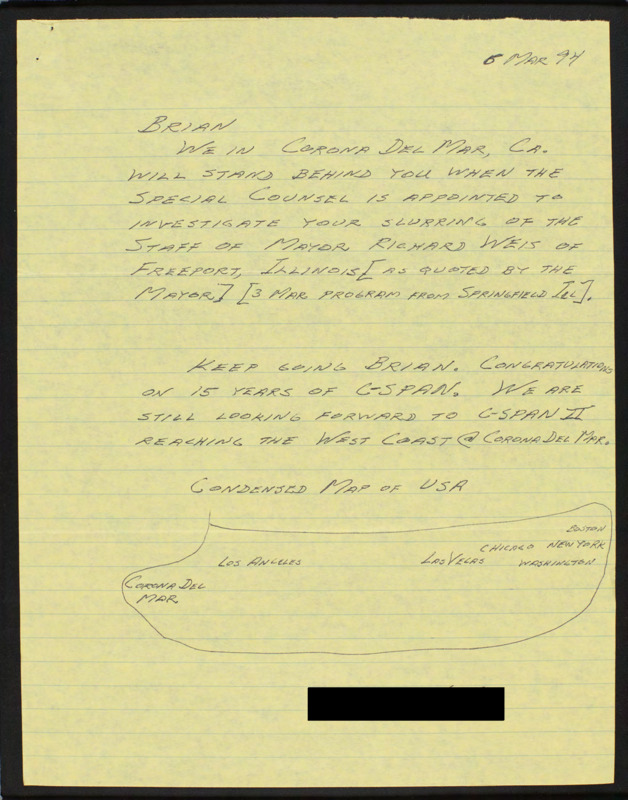 5 MAR 94
BRIAN
WE IN CORONA DEL MAR, CA.
WILL STAND BEHIND YOU WHEN THE
SPECIAL COUNSEL IS APPOINTED TO
INVESTIGATE YOUR SLURRING OF THE
STAFF OF MAYOR RICHARD WEIS OF
FREEPORT, ILLINOIS [AS QUOTED BY THE
MAYOR] [3 MAR PROGRAM FROM SPRINGFIELD ILL].
KEEP GOING BRIAN. CONGRATULATIONS
ON 15 YEARS OF C-SPAN. WE ARE
STILL LOOKING FORWARD TO C-SPAN II
REACHING THE WEST COAST @ CORONA DEL MAR.
CONDENSED MAP OF USA
BOSTON
CHICAGO NEW YORK
LOS ANGELES LAS VEGAS WASHINGTON
CORONA DEL
MAR